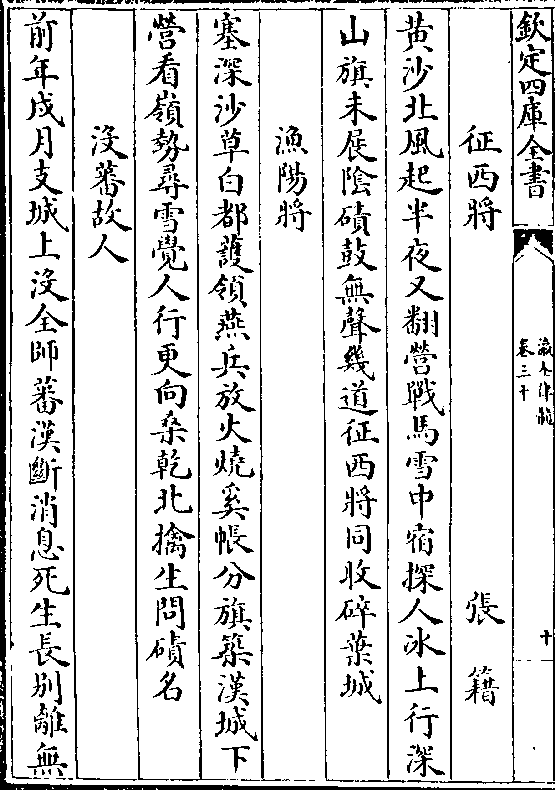 欽定四庫全書
瀛奎律髓
卷三十
十
征西將 張籍
黄沙北風起半夜又翻營戰馬雪中宿探人冰上行深
山旗未展陰磧鼓無聲幾道征西將同收碎葉城
漁陽將
塞深沙草白都護領燕兵放火燒奚帳分旗築漢城下
營看嶺勢尋雪覺人行更向桑乾北擒生問磧名
沒蕃故人
前年戍月支城上沒全師蕃漢斷消息死生長別離無